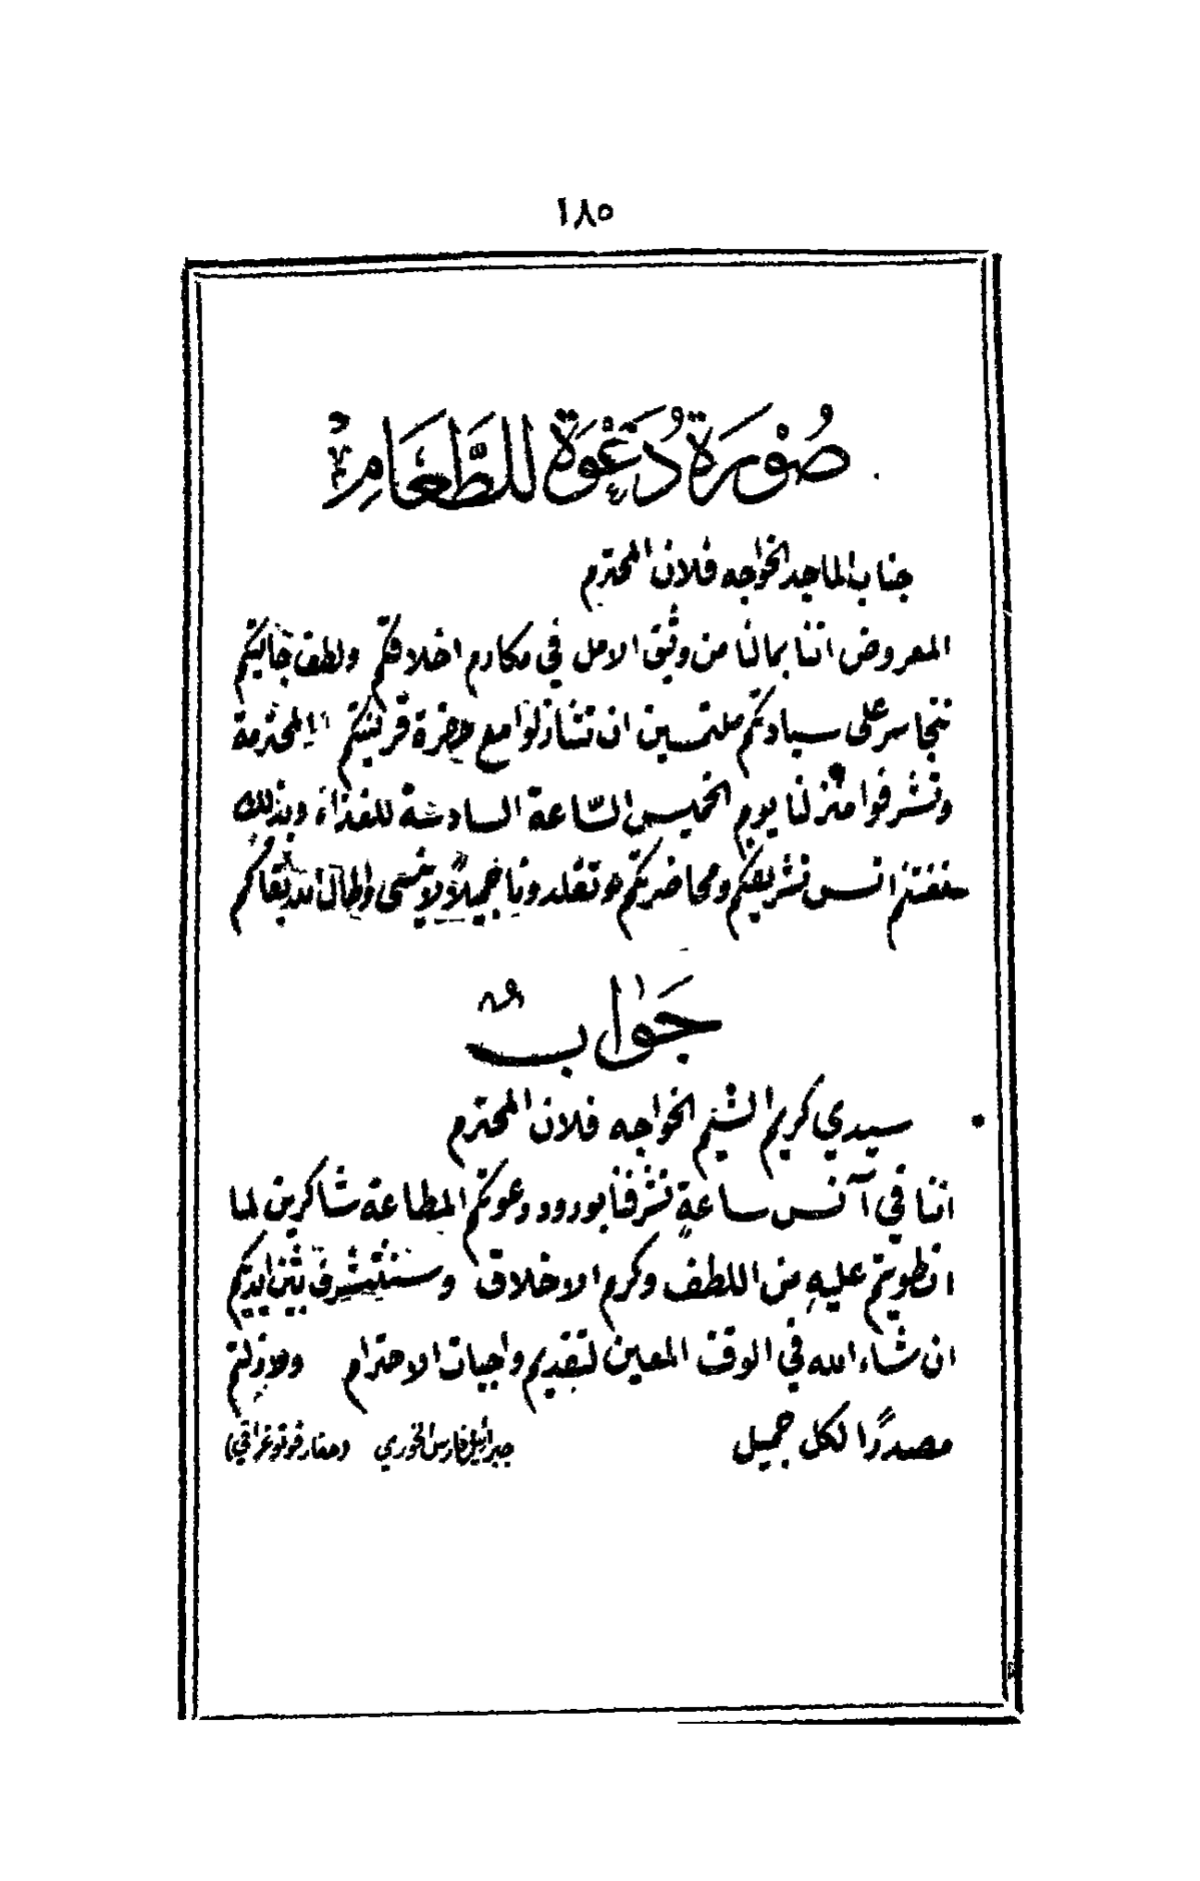 ١٨٥
صُوْرَة دُعْوَة للطَّعَام
جناب الماجد الخواجه فلان المحترم
المعروض اننا بمالنا من وثيق الامل في مكارم اخلاقكم ولطف
نتجاسر على سيادتكم ملتمسين ان تتنازلوا مع حضرة قرينتكم المحترمة
وتشرفوا منزلنا يوم الخميس السّاعة السادسة للغذاء وبذلك
سنغتنم انس تشريفكم ومحاضرتكم وتقلدونا جميلاً لا ينسى واطال الله بقاكم
جَوَاب
سيدي كريم الشيم الخواجه فلان المحترم
اننا في آنس ساعةٍ تشرفنا بورود دعوتكم المطاعة شاكرين لما
انطويتم عليهِ من اللطف وكرم الاخلاق وسنتشرف بين ايديكم
ان شاء الله في الوقت المعين لتقديم واجبات الاحترام ولازلتم
مصدرًا لكل جميل جبرائيل فارس الخوري (حفار فوتوغرافي)